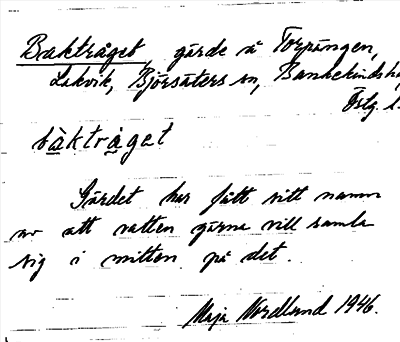 Baktråget, gärde å Torpängen,
Lakvik, Björsäters sn, Bankekinds hd
Östg. l.
bàktrå̱get
Gärdet har fått sitt namn
av att vatten gärna vill samla
sig i mitten på det.
Maja Nordlund 1946.